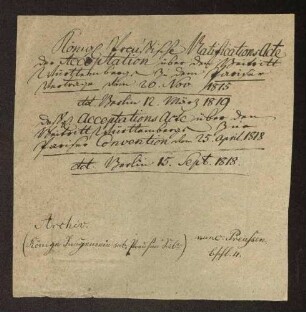 Königl. Preußische Ratifications Acte
der Acceptation über den Beitritt
Württembergs zu dem Pariser
Vertrage vom 20. Nov. 1815
dd. Berlin 12 März 1819
des Acceptations Acte über den
Beitritt Württembergs zur
Pariser Convention vom 25. April 1818
dd. Berlin 15. Sept. 1818.
Archiv.
(Königs
nunc Preussen